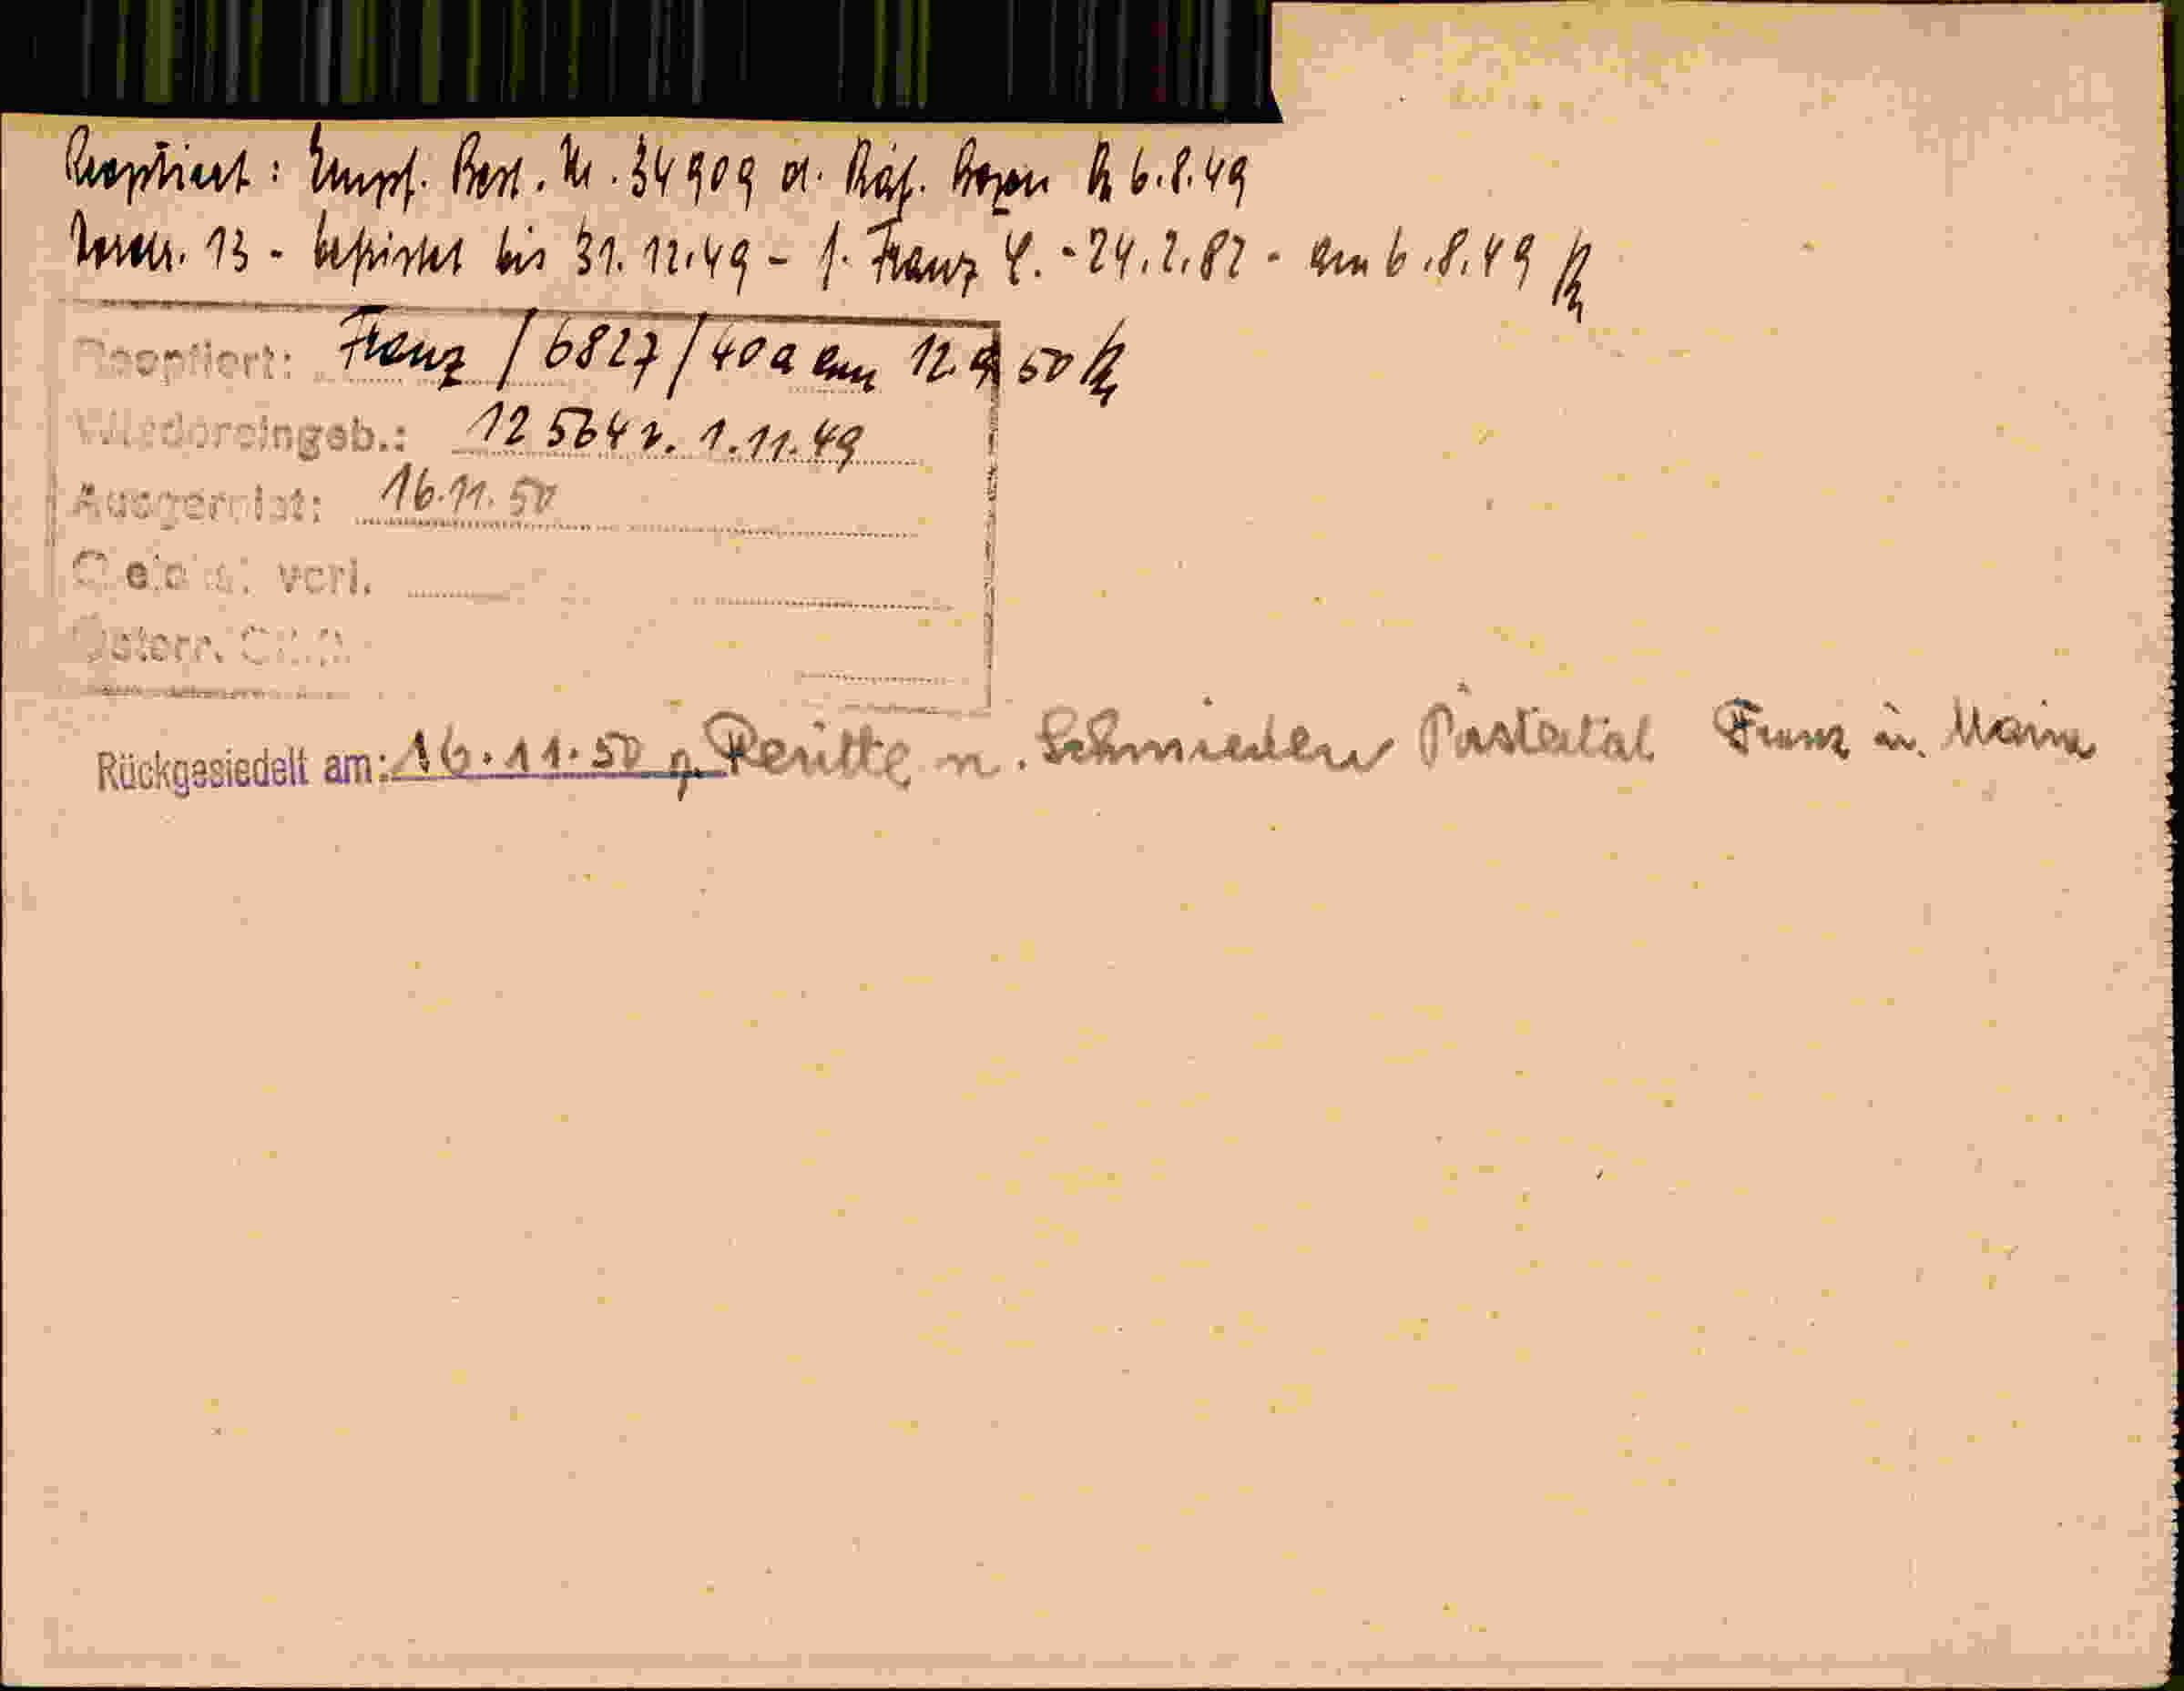 Reoptiert: Empf. Best. Nr. 34909 d. Präf. Bozen 6.8.49
13 - befristet bis 31.12.49 - f. Franz - 24.2.82 - am 6.8.49
Reoptiert: Franz / 6827 / 40a am 12.9 50
Wiedereingeb.: 12564 v. 1.11.49
Ausgereist: 16.11.50
verl.
Österr.
Rückgesiedelt am: 16.11.50 n. Schmieden Pustertal Franz u. Maria